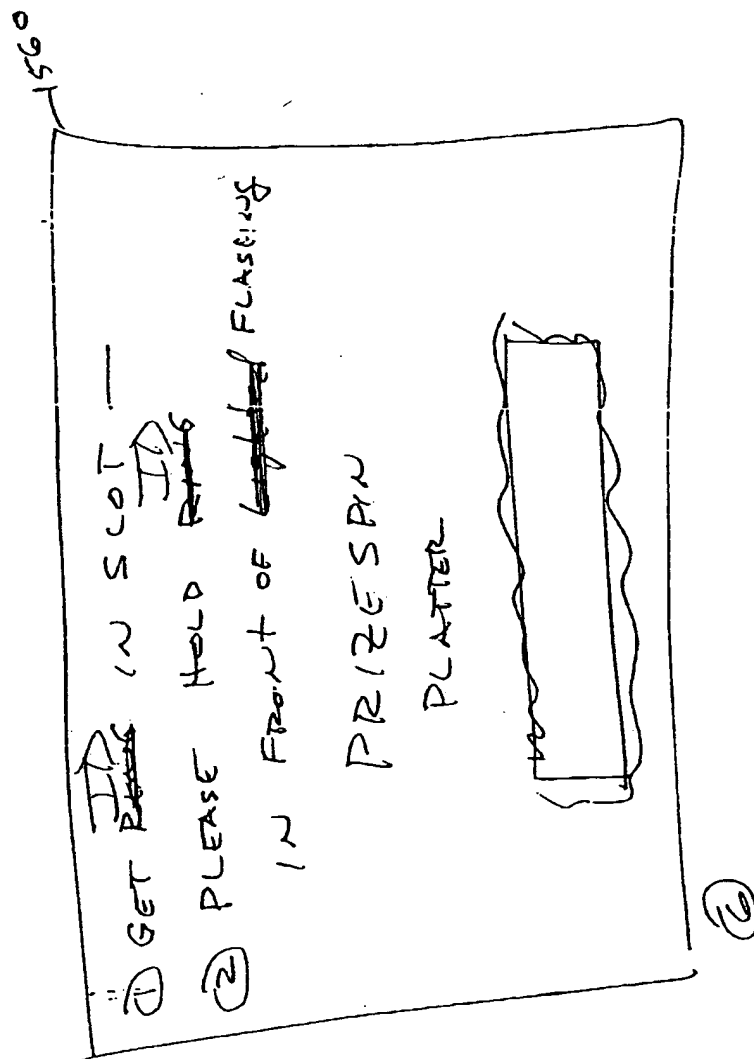 1560
① GET ID IN SLOT —
② PLEASE HOLD ID
IN FRONT OF FLASHING
PRIZE SPIN
PLATTER
⑯